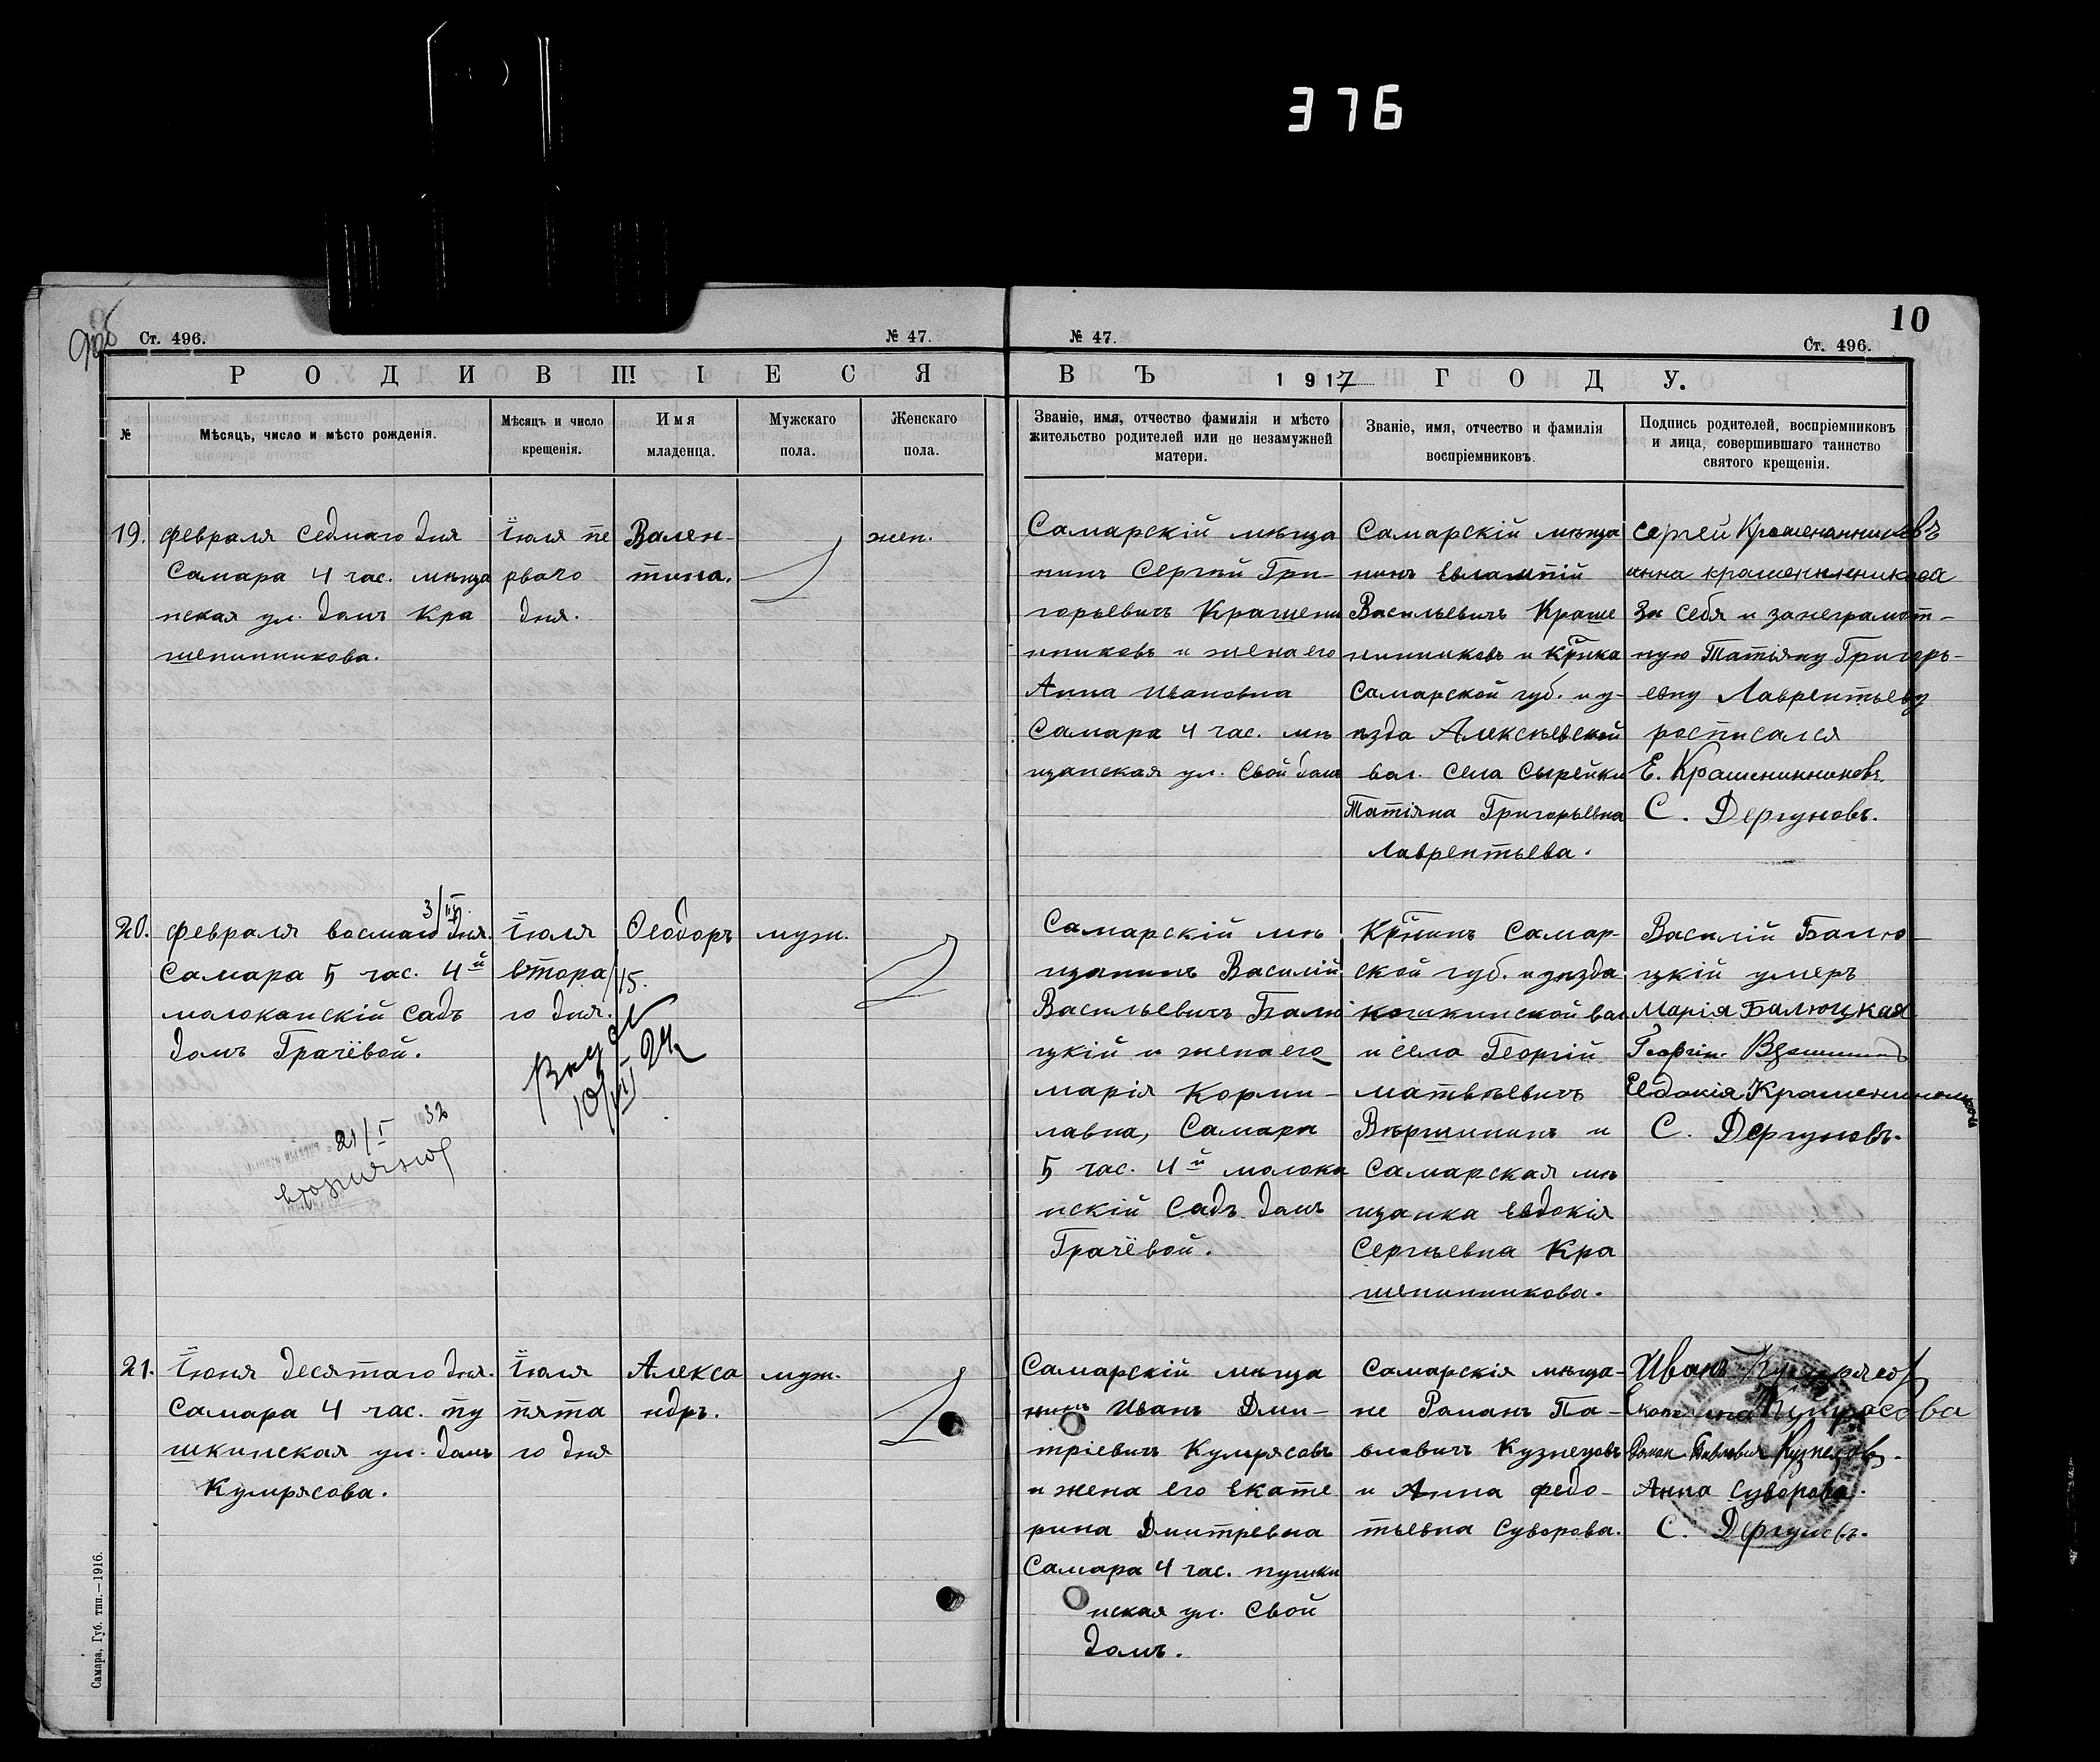 376
10
Ст. 496.
№ 47.
№ 47.
Ст. 496.
РОДИВШІЕСЯ
ВЪ 1917 ГОДУ.
№
Мѣсяцъ, число и мѣсто рожденія.
Мѣсяцъ и число
крещенія.
Имя
младенца.
Мужскаго
пола.
Женскаго
пола.
Званіе, имя, отчество фамилія и мѣсто
жительство родителей или не незамужней
матери.
Званіе, имя, отчество и фамилія
воспріемниковъ.
Подпись родителей, воспріемниковъ
и лица, совершившаго таинство
святого крещенія.
19.
февраля седмаго дня
Самара 4 час. мѣща
нская ул. домъ Кра
шенинникова.
Іюля пе
рваго
дня.
Вален-
тина.
жен.
Самарскій мѣща
нинъ Сергѣй Гри-
горьевичъ Крашени
нниковъ и жена его
Анна Ивановна
Самара 4 час. мѣ
щанская ул. свой домъ
Самарскій мѣща
нинъ Евлампій
Васильевичъ Краше
нинниковъ и Крнка
Самарской губ. и у-
ѣзда Алексѣевской
вол. села Сырейки
Татіяна Григорьевна
Лаврентьева.
Сергей Крашенинниковъ
анна крашенинникова
За себя и занеграмот-
ную Татьяну Григорь-
евну Лаврентьеву
росписался
Е. Крашенинниковъ.
С. Дергуновъ.
20.
3/III.
февраля восмаго дня.
Самара 5 час. 4й
молоканскій садъ
домъ Грачёвой.
21/I 32
Іюля
втора
го дня.
Ѳеодоръ
15.
10/VI 24
муж.
Самарскій мѣ
щанинъ Василій
Васильевичъ Балю
цкій и жена его
марія Корни-
лавна, Самара
5 час. 4й молока
нскій садъ домъ
Грачёвой.
Крнинъ Самар-
ской губ. и уѣзда
кошкинской вол
и села Георгій
матвѣевичъ
Вѣршининъ и
Самарская мѣ
щанка Евдокія
Сергѣевна Кра
шенинникова.
Василій Балю-
цкій умеръ
Марія Балюцкая
Евдокія Крашенинникова
С. Дергуновъ.
21.
Іюня десятаго дня.
Самара 4 час. пу
шкинская ул. домъ
Кумрясова.
Іюля
пята
го дня
Алекса
ндръ.
муж.
Самарскій мѣща
нинъ Иванъ Дми-
тріевичъ Кумрясовъ
и жена его Екате
рина Дмитревна
Самара 4 час. пушки
нская ул. свой
домъ.
Самарскія мѣща-
не Романъ Па-
вловичъ Кузнецовъ
и Анна федо-
тьевна Суворова.
Иванъ Кумрясов
Екатерина Кумрясова
Роман Павловичъ Кузнецов.
Анна Суворова.
С. Дергуновъ.
Самара, Губ. тип.—1916.